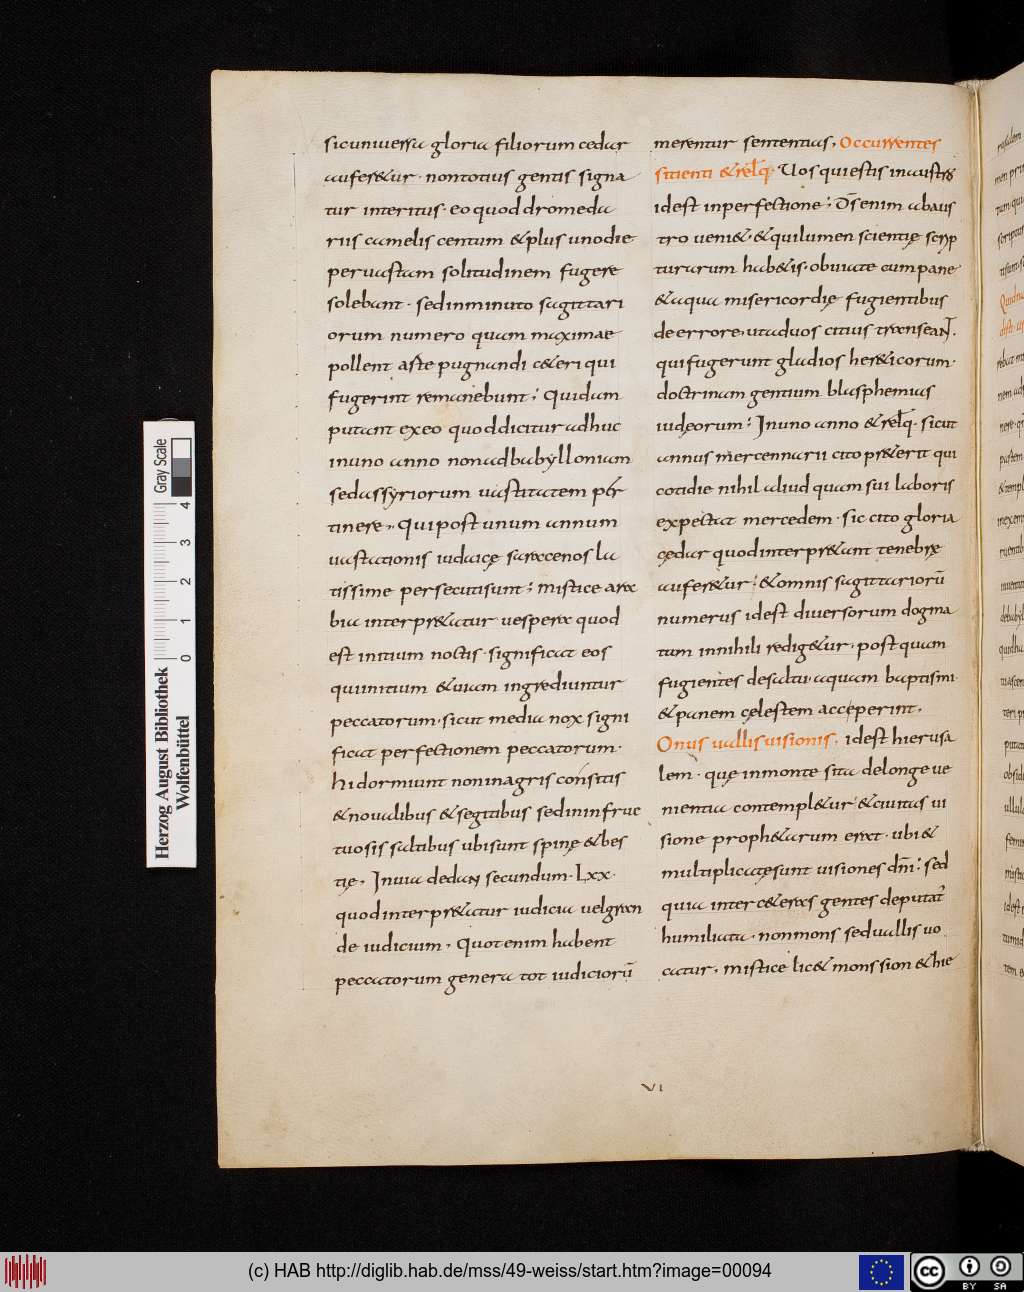 sicuniuersa gloria filiorum cedar
auferetur · non totius gentis signa
tur interitus · eo quod dromeda
riis camelis centum & plus uno die
per uastam solitudinem fugere
solebant · sed in minuto sagittari
orum numero quam maximae
pollent arte pugnandi ceteri qui
fugerint remanebunt; Quidam
putant ex eo quod dicitur adhuc
in uno anno non ad babylloniam
sed assyriorum uastitatem per
tinere, Qui post unum annum
uastationis iudaicę saracenos la
tissime persecuti sunt; mistice ara
bia interpretatur uespera quod
est initium noctis · significat eos
qui initium & uiam ingrediuntur
peccatorum · sicut media nox signi
ficat perfectionem peccatorum ·
hi dormiunt non in agris consitis
& noualibus & segitibus sed in infruc
tuosis saltibus ubi sunt spinę & bes
tię, In uia dedan secundum · Lxx ·
quod interpretatur iudicia uel gran
de iudicium, Quot enim habent
peccatorum genera tot iudiciorū
merentur sententias, Occurrentes
sitienti & relq̄ · Uos qui estis in austro
id est in perfectione; Ds̄ enim ab aus
tro ueni& · & qui lumen scientię scrip
turarum habetis · obuiate cum pane
& aqua misericordię fugientibus
de errore, ut ad uos citius transeant ·
qui fugerunt gladios hereticorum ·
doctrinam gentium blasphemias
iudęorum; In uno anno & relq̄ · sicut
annus mercennarii cito preterit qui
cotidie nihil aliud quam sui laboris
expectat mercedem · sic cito gloria
cędar quod interpretant tenebrę
auferetur; & omnis sagittariorū
numerus id est diuersorum dogma
tum in nihili redigetur, postquam
fugientes de saltu aquam baptismi
& panem cęlestem acceperint,
Onus uallis uisionis, id est hierusa
lem · quę in monte sita de longe ue
nientia contempletur & ciuitas ui
sione prophetarum erat · ubi &
multiplicatę sunt uisiones dn̄i; sed
quia inter ceteras gentes deputat̄
humiliata · non mons sed uallis uo
catur, mistice licet mons sion & hie
VI
Gray Scale
0 1 2 3 4
Herzog August Bibliothek
Wolfenbüttel
(c) HAB http://diglib.hab.de/mss/49-weiss/start.htm?image=00094
cc BY SA